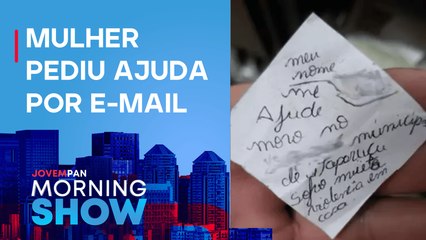 MULHER
PEDIU AJUDA
POR E-MAIL
JOVEMPAN
MORNING
SHOW
meu
nome
me
Ajude
moro no município
de
Sofro muita
violencia em
casa